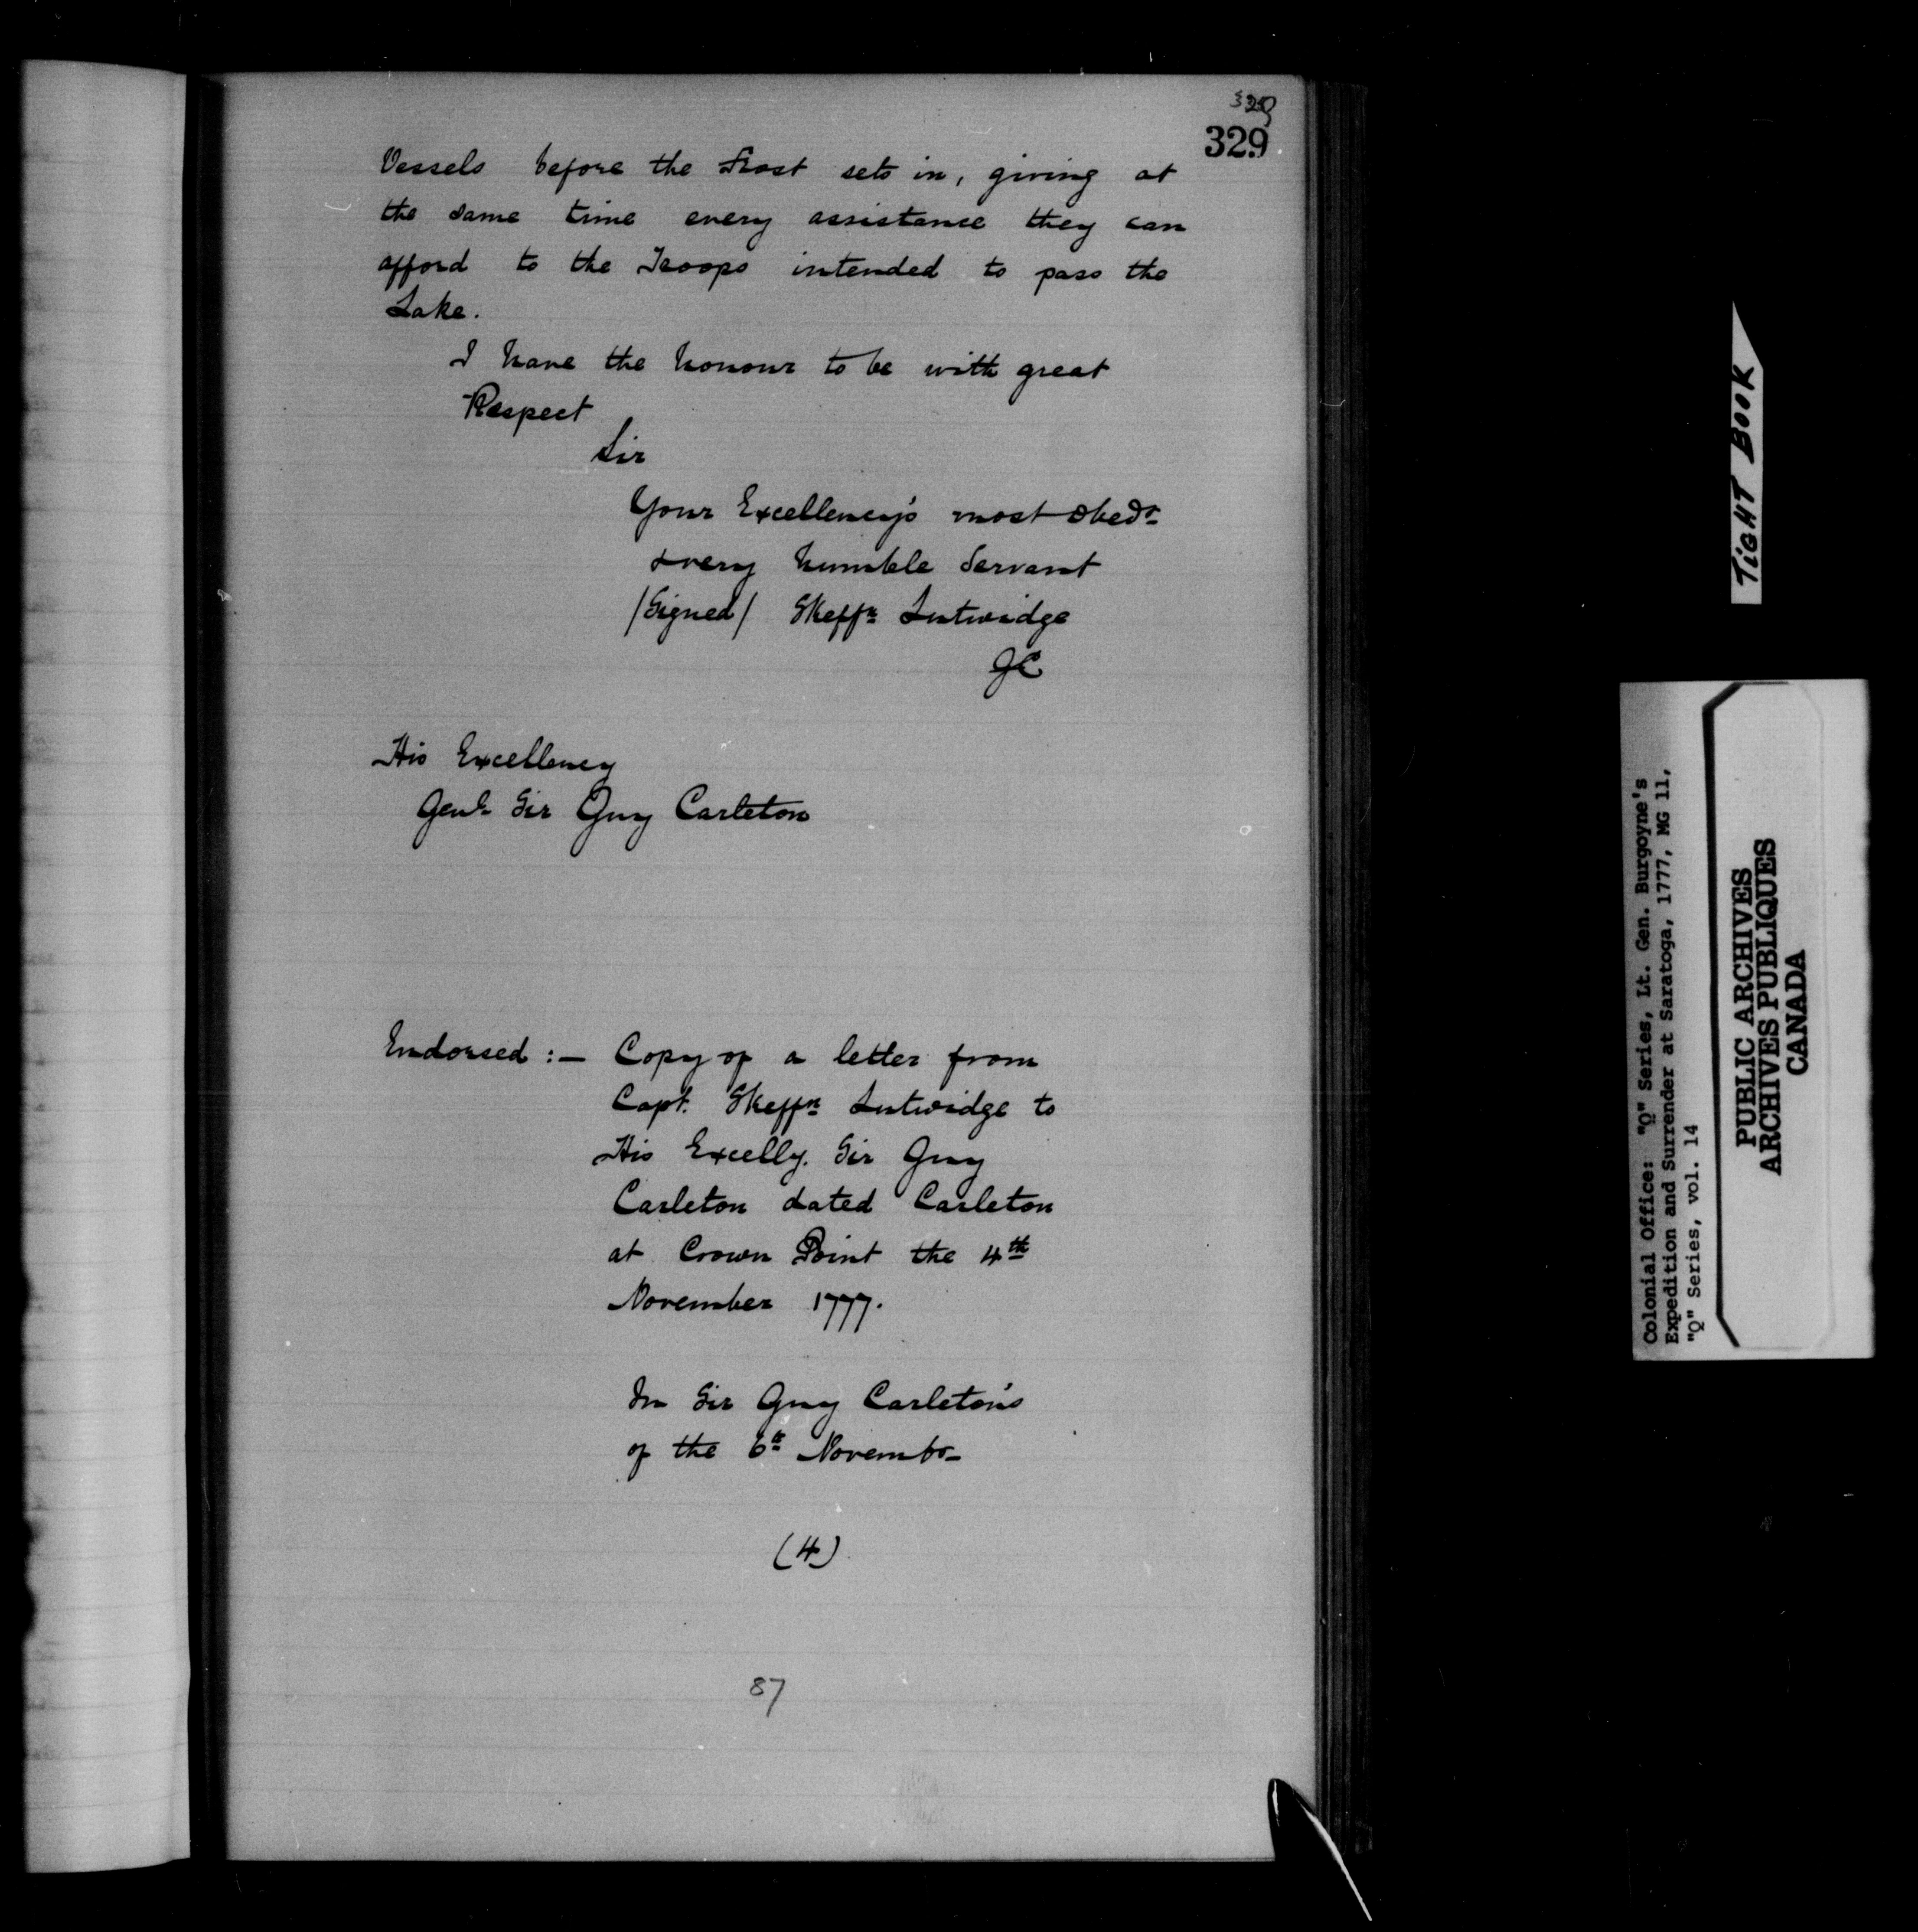 329
329
Vessels before the Frost sets in, giving at
the same time every assistance they can
afford to the Troops intended to pass the
Lake.
I have the honour to be with great
Respect
Sir
Your Excellency's most obedt
& very humble Servant
/Signed/ Skeffn Lutwidge
GC
His Excellency
Genl Sir Guy Carleton
Endorsed :- Copy of a letter from
Capt. Skeffn Lutwidge to
His Excelly. Sir Guy
Carleton dated Carleton
at Crown Point the 4th
November 1777.
In Sir Guy Carleton's
of the 6th Novembr
(4)
87
TIGHT BOOK
Colonial Office: "Q" Series, Lt. Gen. Burgoyne's
Expedition and Surrender at Saratoga, 1777, MG 11,
"Q" Series, vol. 14
PUBLIC ARCHIVES
ARCHIVES PUBLIQUES
CANADA